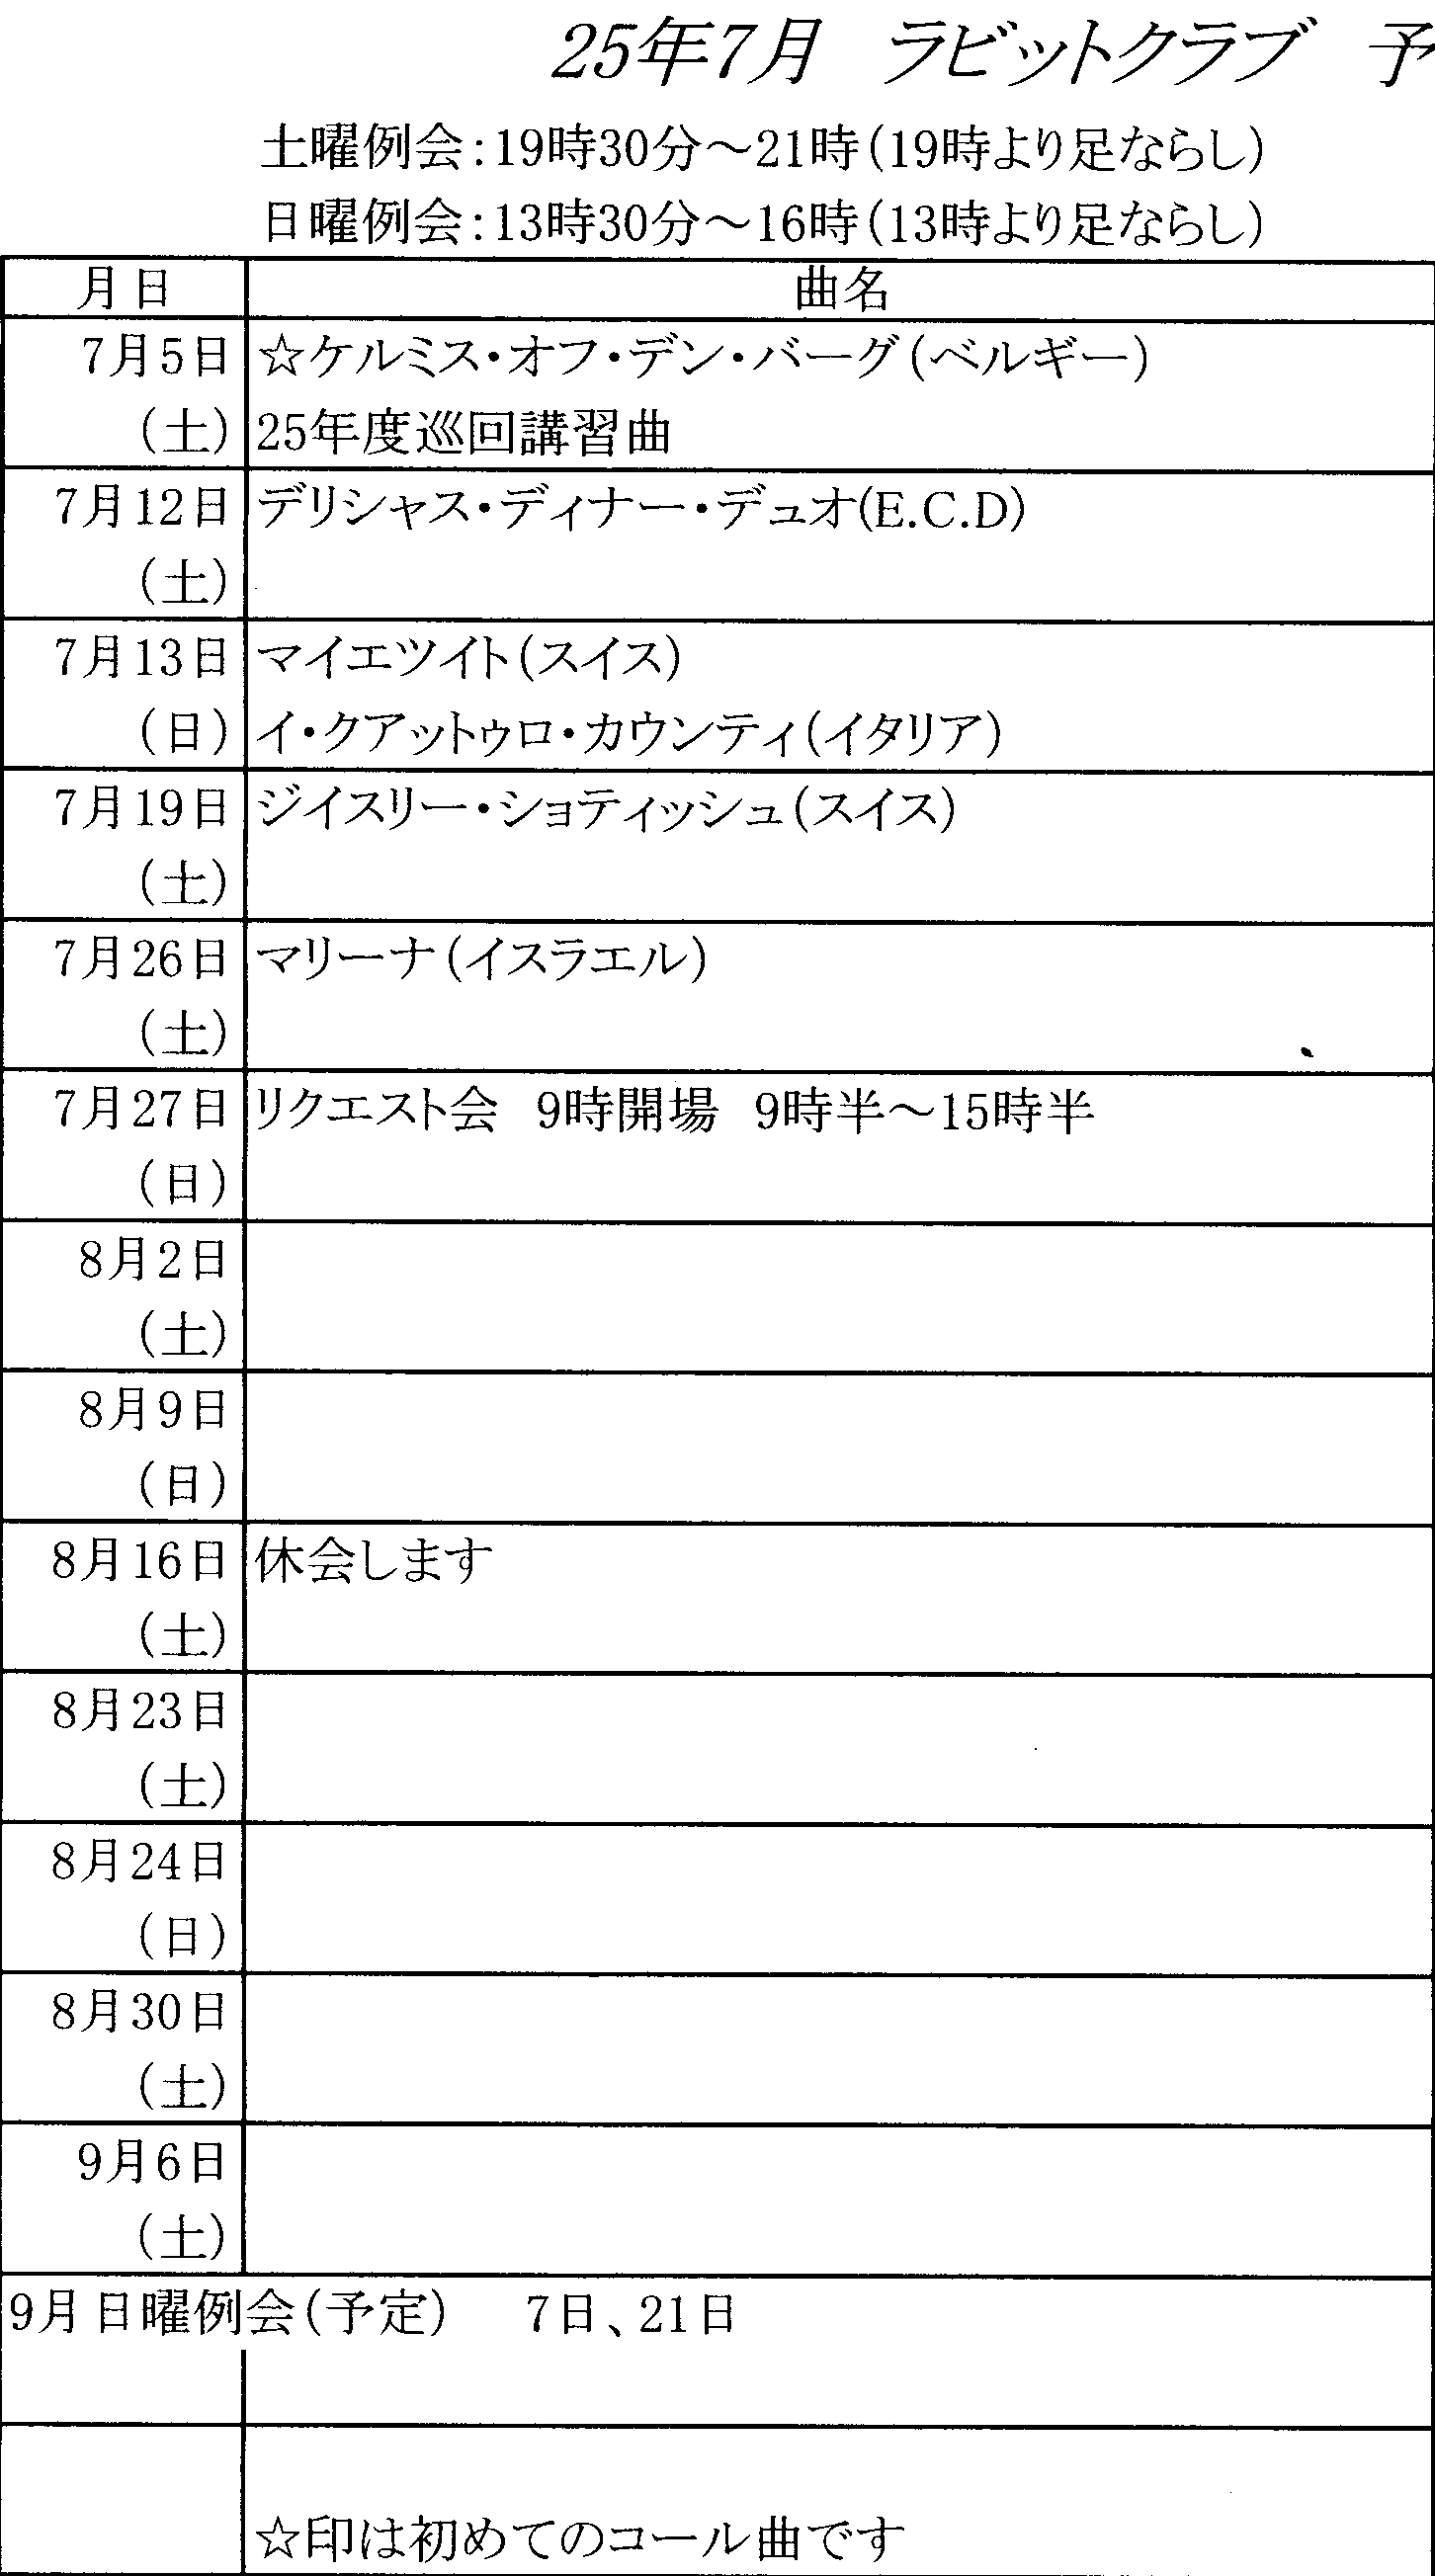 25年7月　ラビットクラブ　予
土曜例会:19時30分～21時(19時より足ならし)
日曜例会:13時30分～16時(13時より足ならし)
月日　曲名
7月5日　☆ケルミス・オフ・デン・バーグ(ベルギー)
(土)　25年度巡回講習曲
7月12日　デリシャス・ディナー・デュオ(E.C.D)
(土)
7月13日　マイエツイト(スイス)
(日)　イ・クアットゥロ・カウンティ(イタリア)
7月19日　ジイスリー・ショティッシュ(スイス)
(土)
7月26日　マリーナ(イスラエル)
(土)
7月27日　リクエスト会　9時開場　9時半～15時半
(日)
8月2日
(土)
8月9日
(日)
8月16日　休会します
(土)
8月23日
(土)
8月24日
(日)
8月30日
(土)
9月6日
(土)
9月日曜例会(予定)　7日、21日
☆印は初めてのコール曲です